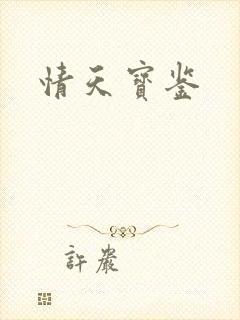 情天寶鉴
許嚴